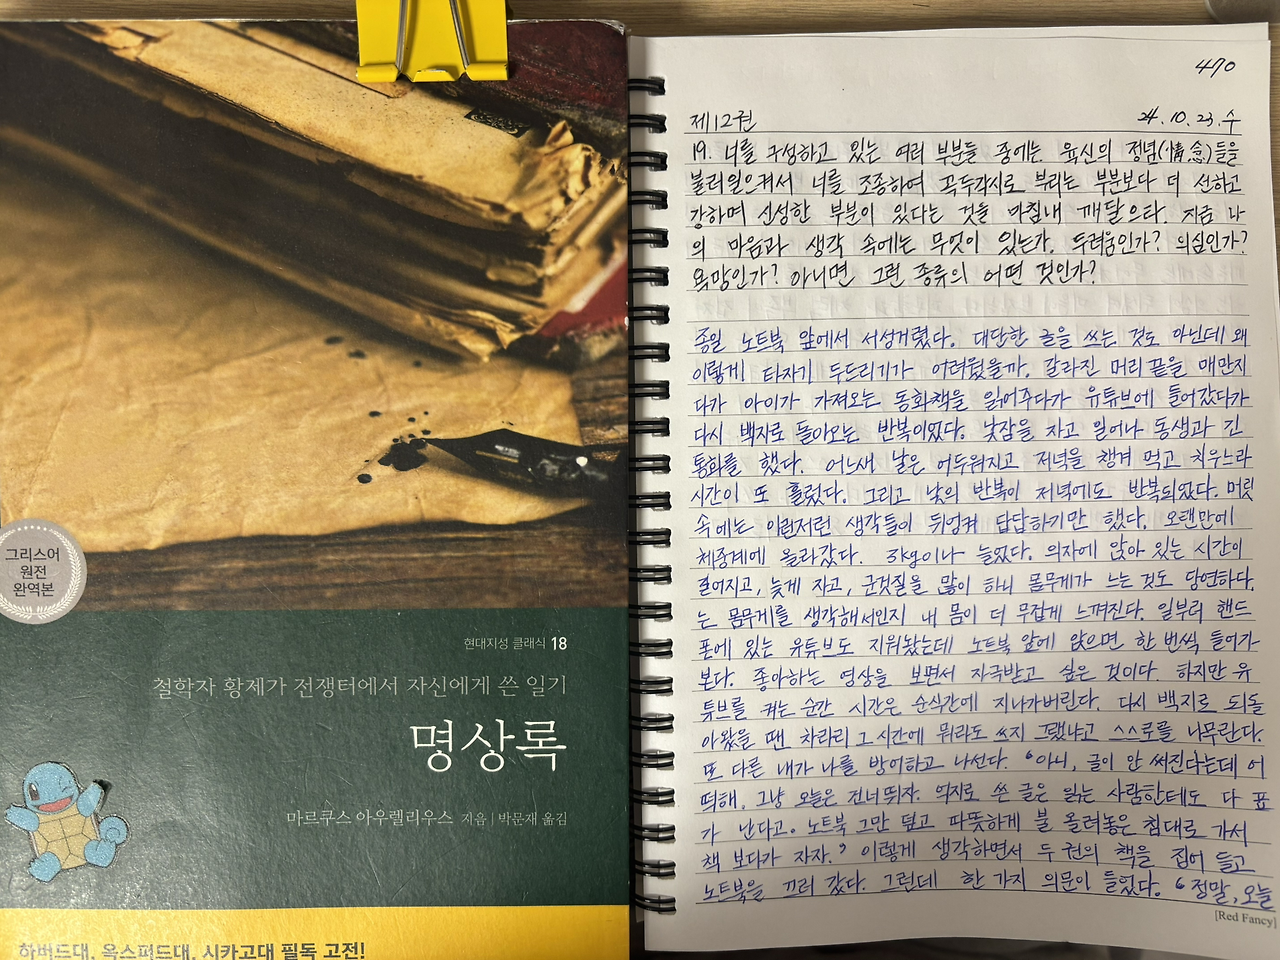 그리스어
원전
완역본
현대지성 클래식 18
철학자 황제가 전쟁터에서 자신에게 쓴 일기
명상록
마르쿠스 아우렐리우스 지음 | 박문재 옮김
하버드대, 옥스퍼드대, 시카고대 필독 고전!
470
제12권 24.10.23.수
19. 너를 구성하고 있는 여러 부분들 중에는 육신의 정념(情念)들을
불러일으켜서 너를 조종하여 꼭두각시로 부리는 부분보다 더 선하고
강하며 신성한 부분이 있다는 것을 마침내 깨달으라. 지금 나
의 마음과 생각 속에는 무엇이 있는가. 두려움인가? 의심인가?
욕망인가? 아니면 그런 종류의 어떤 것인가?
종일 노트북 앞에서 서성거렸다. 대단한 글을 쓰는 것도 아닌데 왜
이렇게 타자기 두드리기가 어려웠을까. 갈라진 머리끝을 매만지
다가 아이가 가져오는 동화책을 읽어주다가 유튜브에 들어갔다가
다시 백지로 돌아오는 반복이었다. 낮잠을 자고 일어나 동생과 긴
통화를 했다. 어느새 날은 어두워지고 저녁을 챙겨 먹고 치우느라
시간이 또 흘렀다. 그리고 낮의 반복이 저녁에도 반복되었다. 머릿
속에는 이런저런 생각들이 뒤엉켜 답답하기만 했다. 오랜만에
체중계에 올라갔다. 3kg이나 늘었다. 의자에 앉아 있는 시간이
길어지고, 늦게 자고, 군것질을 많이 하니 몸무게가 느는 것도 당연하다.
는 몸무게를 생각해서인지 내 몸이 더 무겁게 느껴진다. 일부러 핸드
폰에 있는 유튜브도 지워놨는데 노트북 앞에 앉으면 한 번씩 들어가
본다. 좋아하는 영상을 보면서 자극받고 싶은 것이다. 하지만 유
튜브를 켜는 순간 시간은 순식간에 지나가버린다. 다시 백지로 되돌
아왔을 땐 차라리 그 시간에 뭐라도 쓰지 그랬냐고 스스로를 나무란다.
또 다른 내가 나를 방어하고 나선다. “아니, 글이 안 써진다는데 어
떡해. 그냥 오늘은 건너뛰자. 억지로 쓴 글은 읽는 사람한테도 다 표
가 난다고. 노트북 그만 덮고 따뜻하게 불 올려놓은 침대로 가서
책 보다가 자자.” 이렇게 생각하면서 두 권의 책을 집어 들고
노트북을 끄러 갔다. 그런데 한 가지 의문이 들었다. “정말, 오늘
[Red Fancy]